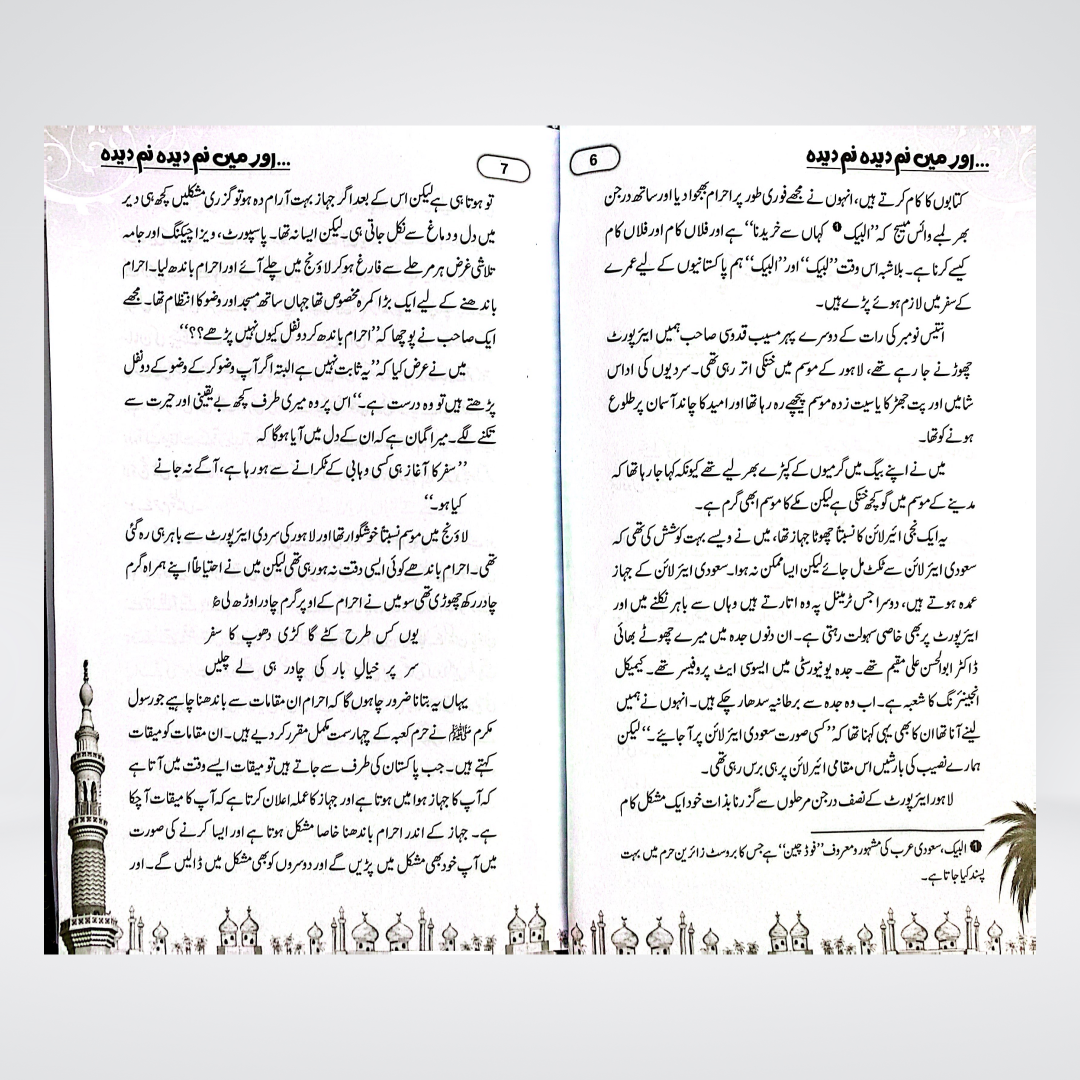 ...اور میں نم دیدہ نم دیدہ
6
کتابوں کا کام کرتے ہیں، انہوں نے مجھے فوری طور پر احرام بھجوا دیا اور ساتھ درجن
بھر لمبے وائس میسج کہ ”البیک ❶ کہاں سے خریدنا“ ہے اور فلاں کام اور فلاں کام
کیسے کرنا ہے۔ بلاشبہ اس وقت ”لبیک“ اور ”البیک“ ہم پاکستانیوں کے لیے عمرے
کے سفر میں لازم ہوئے پڑے ہیں۔
انتیس نومبر کی رات کے دوسرے پہر مسیب قدوسی صاحب ہمیں ایئر پورٹ
چھوڑنے جا رہے تھے، لاہور کے موسم میں خنکی اتر رہی تھی۔ سردیوں کی اداس
شامیں اور پت جھڑ کا یاسیت زدہ موسم پیچھے رہ رہا تھا اور امید کا چاند آسمان پر طلوع
ہونے کو تھا۔
میں نے اپنے بیگ میں گرمیوں کے کپڑے بھر لیے تھے کیونکہ کہا جا رہا تھا کہ
مدینے کے موسم میں گو کچھ خنکی ہے لیکن مکے کا موسم ابھی گرم ہے۔
یہ ایک نجی ائیر لائن کا نسبتاً چھوٹا جہاز تھا، میں نے ویسے بہت کوشش کی تھی کہ
سعودی ایئر لائن سے ٹکٹ مل جائے لیکن ایسا ممکن نہ ہوا۔ سعودی ایئر لائن کے جہاز
عمدہ ہوتے ہیں، دوسرا جس ٹرمینل پہ وہ اتارتے ہیں وہاں سے باہر نکلنے میں اور
ایئر پورٹ پر بھی خاصی سہولت رہتی ہے۔ ان دنوں جدہ میں میرے چھوٹے بھائی
ڈاکٹر ابوالحسن علی مقیم تھے۔ جدہ یونیورسٹی میں ایسوسی ایٹ پروفیسر تھے۔ کیمیکل
انجینئرنگ کا شعبہ ہے۔ اب وہ جدہ سے برطانیہ سدھار چکے ہیں۔ انہوں نے ہمیں
لینے آنا تھا ان کا بھی یہی کہنا تھا کہ ”کسی صورت سعودی ایئر لائن پر آ جائیے۔“ لیکن
ہمارے نصیب کی بارشیں اس مقامی ائیر لائن پر ہی برس رہی تھی۔
لاہور ایئر پورٹ کے نصف درجن مرحلوں سے گزرنا بذات خود ایک مشکل کام
❶ البیک، سعودی عرب کی مشہور و معروف ”فوڈ چین“ ہے جس کا بروسٹ زائرین حرم میں بہت
پسند کیا جاتا ہے۔
...اور میں نم دیدہ نم دیدہ
7
تو ہوتا ہی ہے لیکن اس کے بعد اگر جہاز بہت آرام دہ ہو تو گزری مشکلیں کچھ ہی دیر
میں دل و دماغ سے نکل جاتی ہی۔ لیکن ایسا نہ تھا۔ پاسپورٹ، ویزا چیکنگ اور جامہ
تلاشی غرض ہر مرحلے سے فارغ ہو کر لاؤنج میں چلے آئے اور احرام باندھ لیا۔ احرام
باندھنے کے لیے ایک بڑا کمرہ مخصوص تھا جہاں ساتھ مسجد اور وضو کا انتظام تھا۔ مجھے
ایک صاحب نے پوچھا کہ ”احرام باندھ کر دو نفل کیوں نہیں پڑھے؟؟“
میں نے عرض کیا کہ ”یہ ثابت نہیں ہے البتہ اگر آپ وضو کر کے وضو کے دو نفل
پڑھتے ہیں تو وہ درست ہے۔“ اس پر وہ میری طرف کچھ بے یقینی اور حیرت سے
تکنے لگے۔ میرا گمان ہے کہ ان کے دل میں آیا ہوگا کہ
”سفر کا آغاز ہی کسی وہابی کے ٹکرانے سے ہو رہا ہے، آگے نہ جانے
کیا ہو۔“
لاؤنج میں موسم نسبتاً خوشگوار تھا اور لاہور کی سردی ایئر پورٹ سے باہر ہی رہ گئی
تھی۔ احرام باندھے کوئی ایسی دقت نہ ہو رہی تھی لیکن میں نے احتیاطاً اپنے ہمراہ گرم
چادر رکھ چھوڑی تھی سو میں نے احرام کے اوپر گرم چادر اوڑھ لی ؏
یوں کس طرح کٹے گا کڑی دھوپ کا سفر
سر پر خیالِ یار کی چادر ہی لے چلیں
یہاں یہ بتانا ضرور چاہوں گا کہ احرام ان مقامات سے باندھنا چاہیے جو رسول
مکرم ﷺ نے حرم کعبہ کے چہار سمت مکمل مقرر کر دیے ہیں۔ ان مقامات کو میقات
کہتے ہیں۔ جب پاکستان کی طرف سے جاتے ہیں تو میقات ایسے وقت میں آتا ہے
کہ آپ کا جہاز ہوا میں ہوتا ہے اور جہاز کا عملہ اعلان کرتا ہے کہ آپ کا میقات آ چکا
ہے۔ جہاز کے اندر احرام باندھنا خاصا مشکل ہوتا ہے اور ایسا کرنے کی صورت
میں آپ خود بھی مشکل میں پڑیں گے اور دوسروں کو بھی مشکل میں ڈالیں گے۔ اور